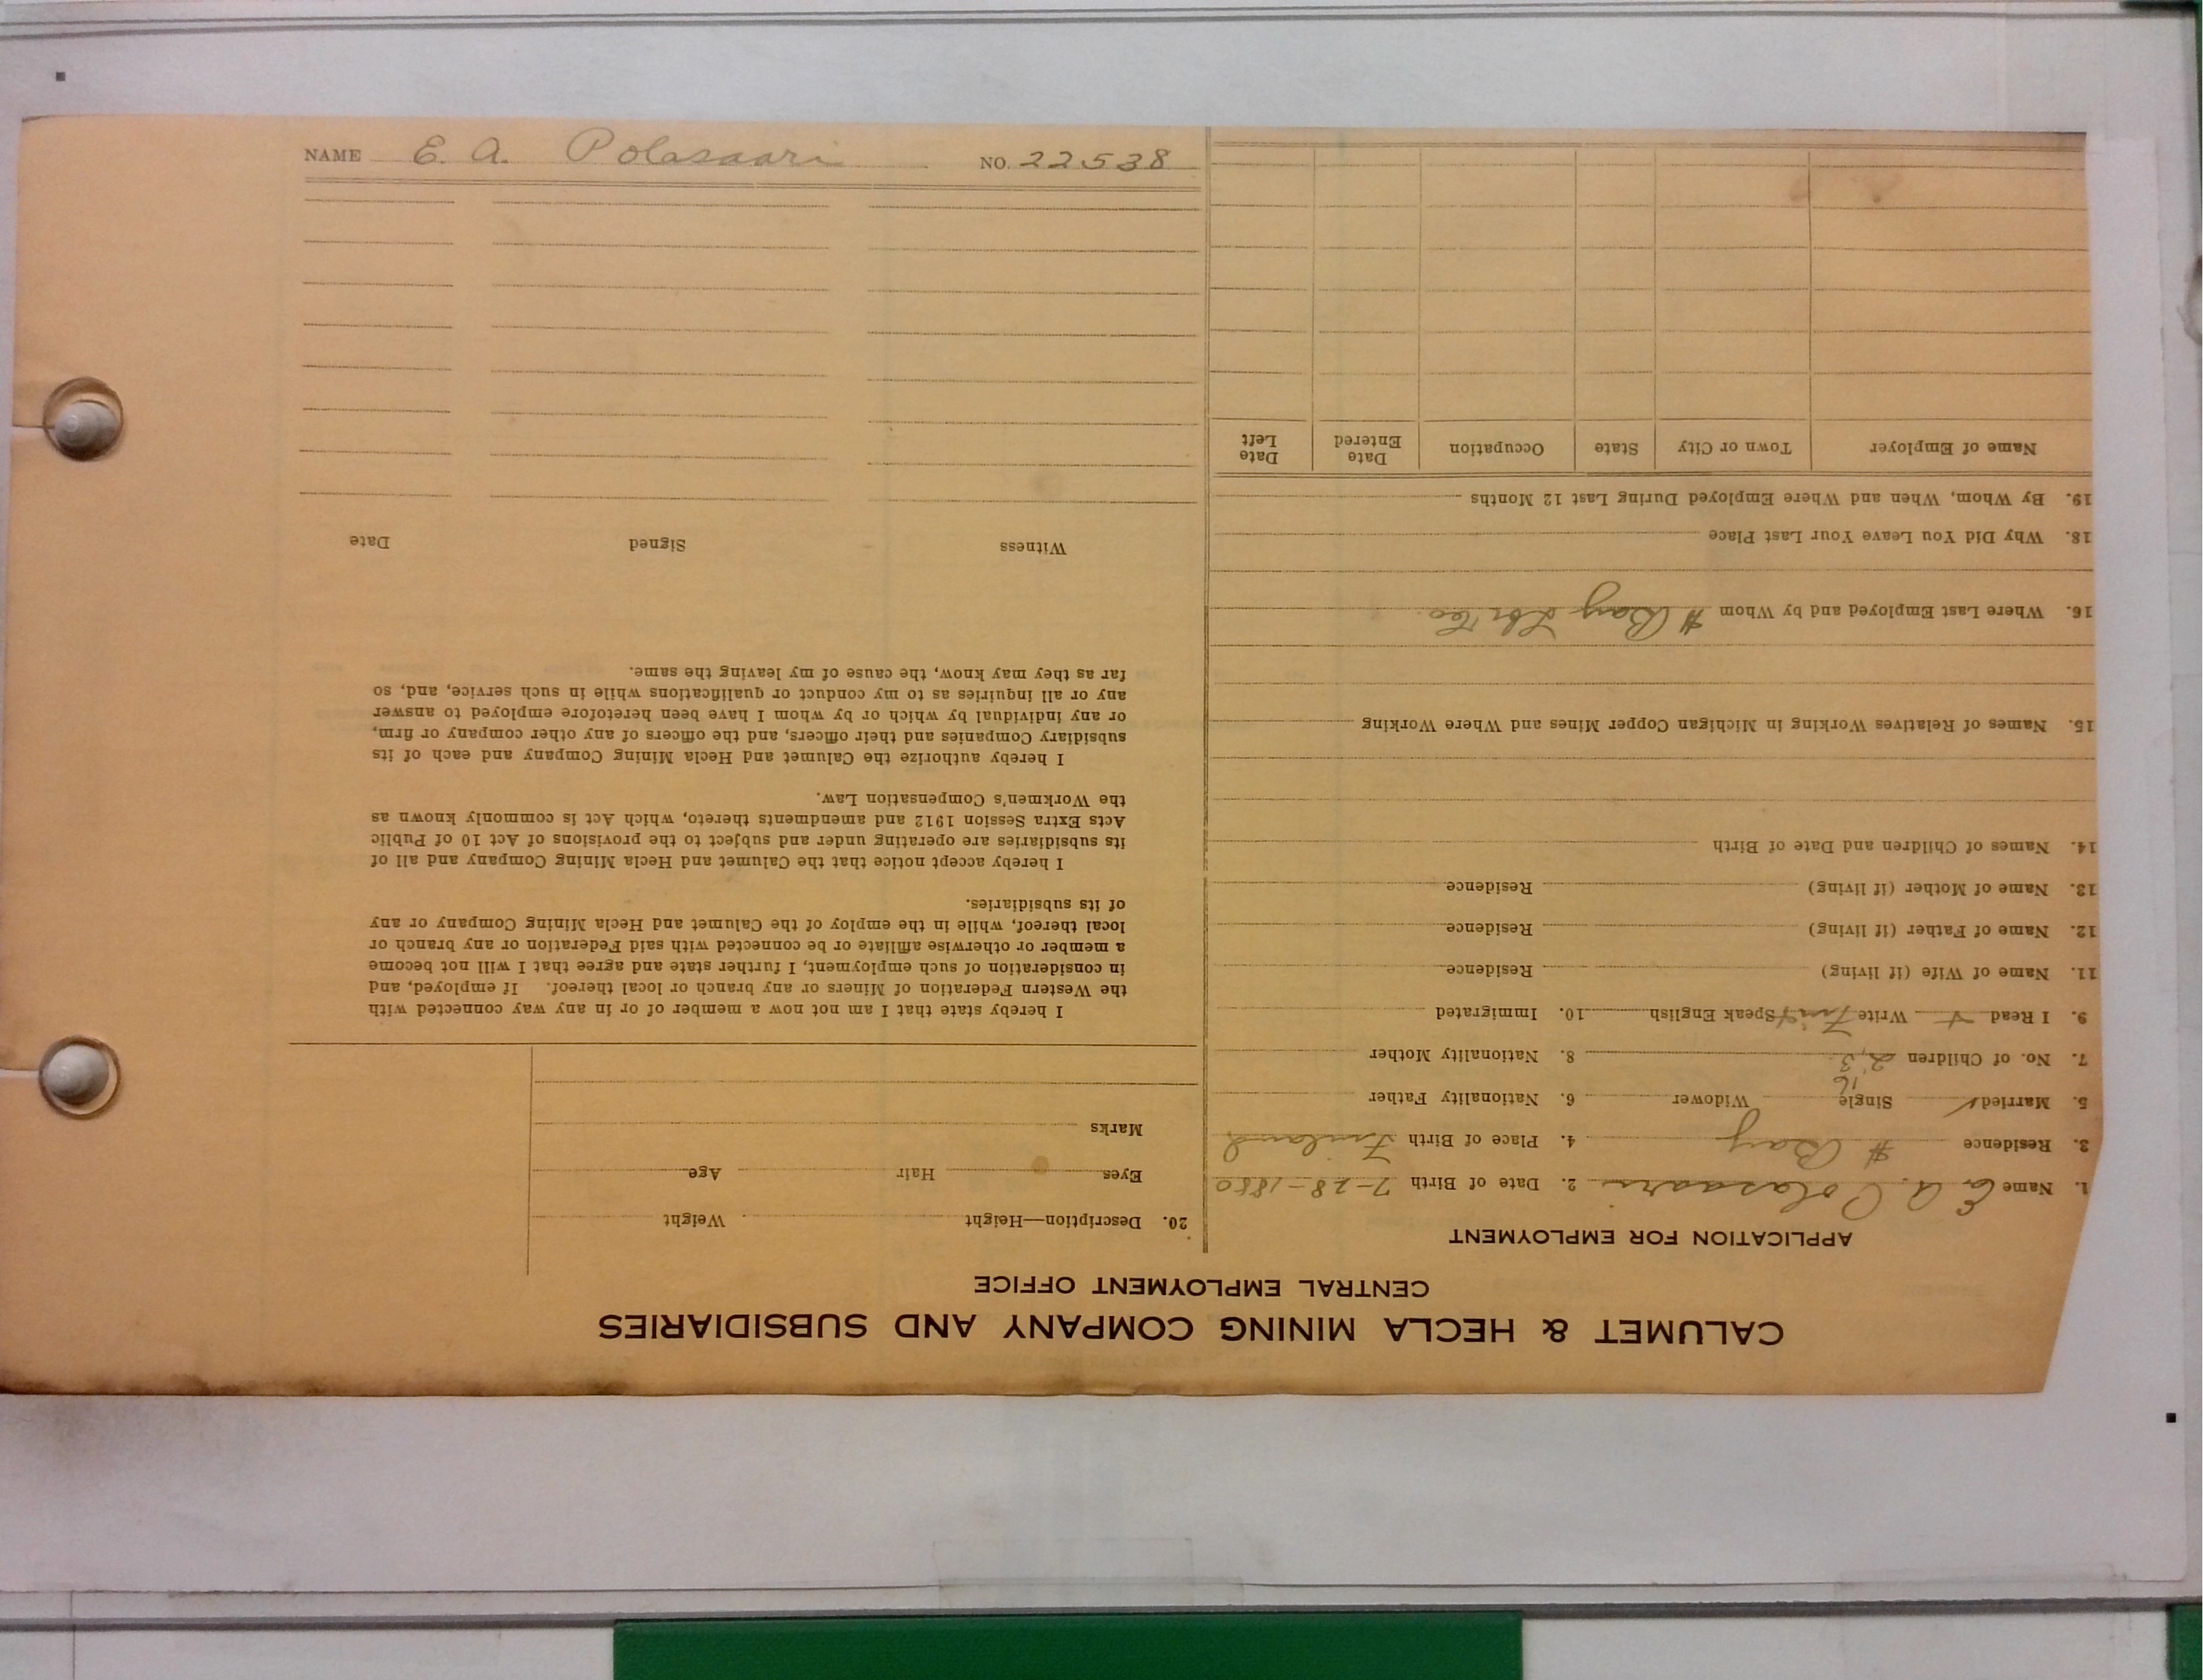 NAME E. A. Polasaari NO. 22538
CALUMET & HECLA MINING COMPANY AND SUBSIDIARIES
CENTRAL EMPLOYMENT OFFICE
APPLICATION FOR EMPLOYMENT
1. Name E. A. Polasaari 2. Date of Birth 7-28-1880
3. Residence # Bay 4. Place of Birth Finland
5. Married ✓ Single Widower 6. Nationality Father
16
7. No. of Children 2, 3 8. Nationality Mother
9. I Read Write Speak English 10. Immigrated
11. Name of Wife (if living) Residence
12. Name of Father (if living) Residence
13. Name of Mother (if living) Residence
14. Names of Children and Date of Birth
15. Names of Relatives Working in Michigan Copper Mines and Where Working
16. Where Last Employed and by Whom # Bay Lbr Co.
18. Why Did You Leave Your Last Place
19. By Whom, When and Where Employed During Last 12 Months
Name of Employer Town or City State Occupation Date Entered Date Left
20. Description—Height Weight
Eyes Hair Age
Marks
I hereby state that I am not now a member of or in any way connected with
the Western Federation of Miners or any branch or local thereof. If employed, and
in consideration of such employment, I further state and agree that I will not become
a member or otherwise affiliate or be connected with said Federation or any branch or
local thereof, while in the employ of the Calumet and Hecla Mining Company or any
of its subsidiaries.
I hereby accept notice that the Calumet and Hecla Mining Company and all of
its subsidiaries are operating under and subject to the provisions of Act 10 of Public
Acts Extra Session 1912 and amendments thereto, which Act is commonly known as
the Workmen's Compensation Law.
I hereby authorize the Calumet and Hecla Mining Company and each of its
subsidiary Companies and their officers, and the officers of any other company or firm,
or any individual by which or by whom I have been heretofore employed to answer
any or all inquiries as to my conduct or qualifications while in such service, and, so
far as they may know, the cause of my leaving the same.
Witness Signed Date